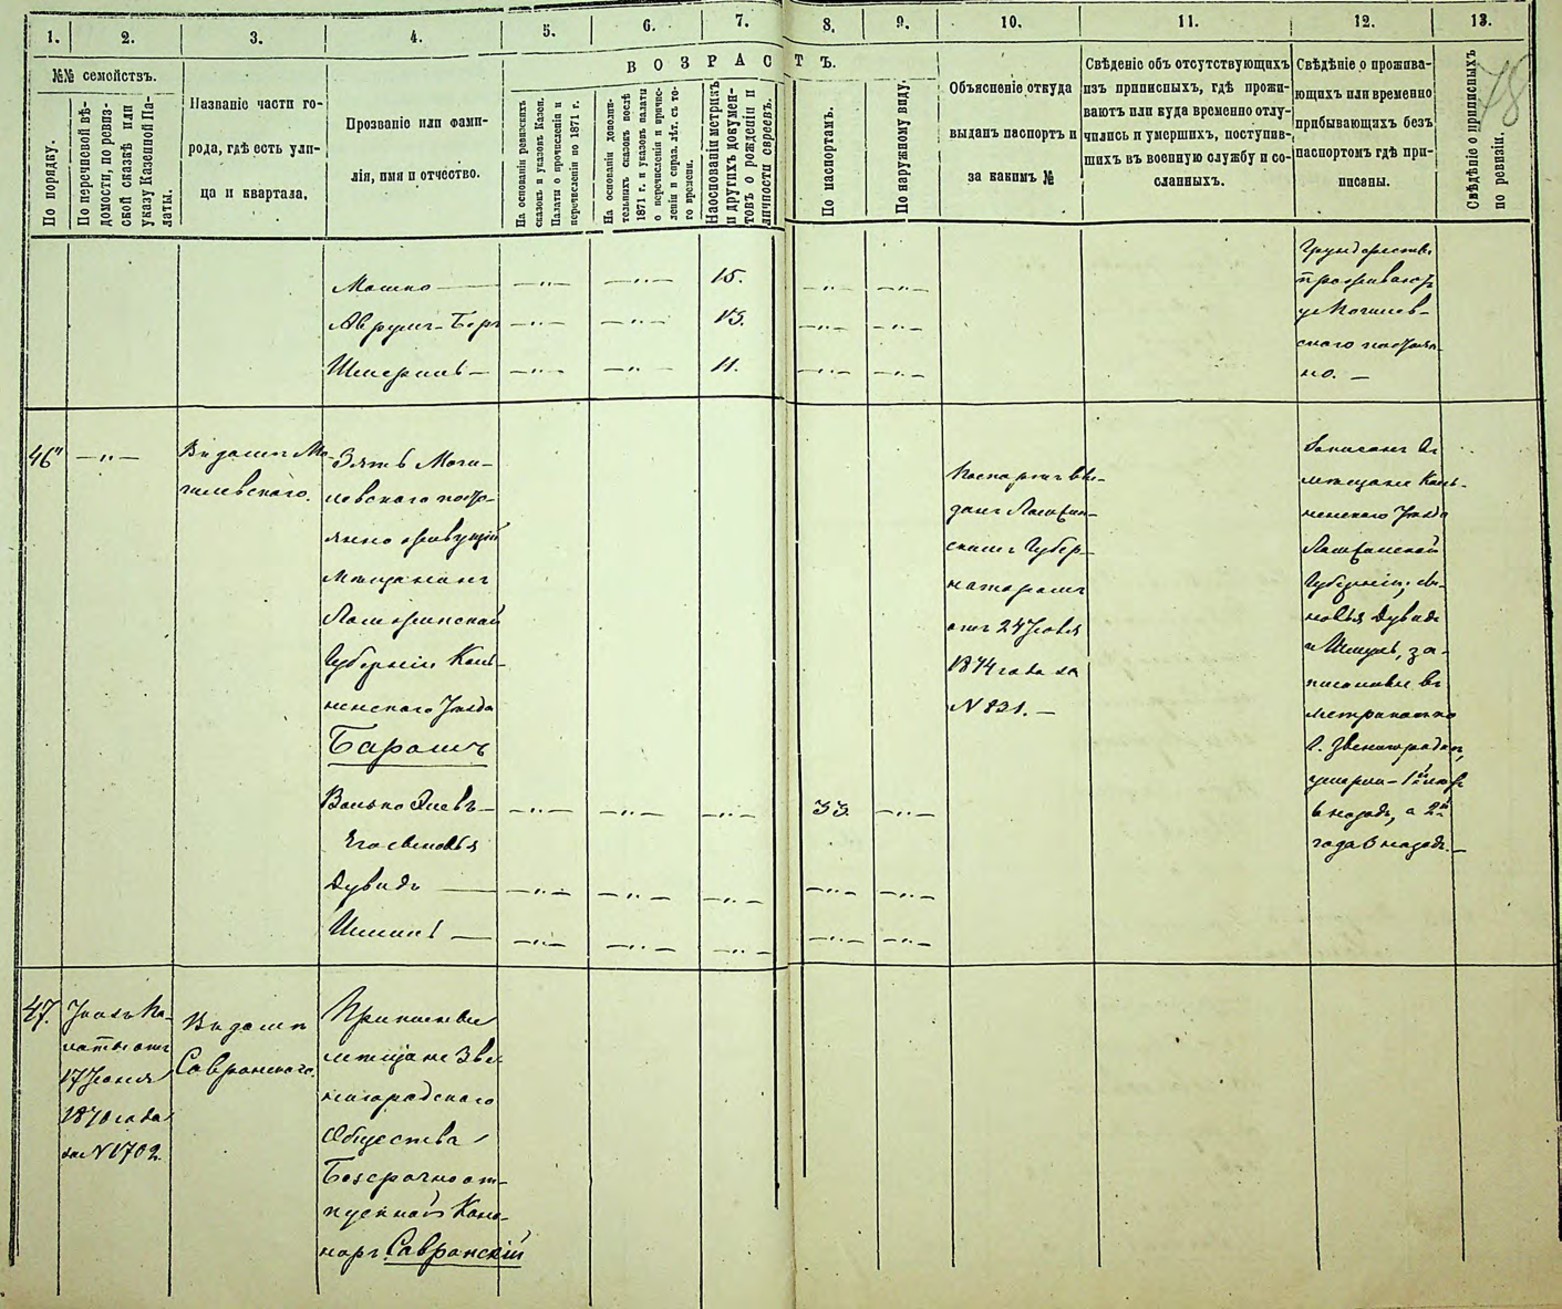 1.
2.
3.
4.
5.
6.
7.
8.
9.
10.
11.
12.
13.
78
В О З Р А С Т Ъ.
№№ семействъ.
По порядку.
По перечневой вѣ-
домости, по ревиз-
ской сказкѣ или
указу Казенной Па-
латы.
Названіе части го-
рода, гдѣ есть ули-
ца и квартала.
Прозваніе или фами-
лія, имя и отчество.
На основаніи ревизскихъ
сказокъ и указовъ Казен.
Палаты о причисленіи и
перечисленіи по 1871 г.
На основаніи дополни-
тельныхъ сказокъ послѣ
1871 г. и указовъ палаты
о перечисленіи и причис-
леніи и справ. лѣт. съ то-
го времени.
На основаніи метрикъ
и другихъ докумен-
товъ о рожденіи и
личности евреевъ.
По паспортамъ.
По наружному виду.
Объясненіе откуда
выданъ паспортъ и
за какимъ №
Свѣденіе объ отсутствующихъ
изъ приписныхъ, гдѣ прожи-
ваютъ или куда временно отлу-
чились и умершихъ, поступив-
шихъ въ военную службу и со-
сланныхъ.
Свѣдѣніе о прожива-
ющихъ или временно
прибывающихъ безъ
паспортомъ гдѣ при-
писаны.
Свѣдѣніе о приписныхъ
по ревизіи.
Мошко — — " — — " — 15. — " — — " —
Аврумъ-Беръ — " — — " — 13. — " — — " —
Шмериль — — " — — " — 11. — " — — " —
проживаютъ
у Могилев-
скаго постоян-
но. —
46 — " —
Въ домѣ Мо-
гилевскаго.
Зять Моги-
левскаго посто-
янно живущій
Мѣщанинъ
Ломжинской
Губерніи Коль-
ненскаго Уѣзда
Барашъ
Волько Элевъ — — " — — " — — " — 33. — " —
Его сыновья
Дувидъ — — " — — " — — " — — " — — " —
— — " — — " — — " — — " — — " —
Паспортъ вы-
данъ Ломжин-
скимъ Губер-
наторомъ
отъ 24 Іюля
1874 года за
N 831. —
Записанъ въ
мѣщане Коль-
ненскаго Уѣзда
Ломжинской
Губерніи; сы-
новья Дувидъ
и Шмуль, за-
писанные въ
метрикахъ по
г. Звенигородкѣ,
умерли - 1й лѣтъ
6 назадъ, а 2й
года 3 назадъ. —
47.
Указъ Па-
латы отъ
17 Іюня
1870 года
за N 1702.
Въ домѣ
Савранскаго.
Приписные
мѣщане Зве-
нигородскаго
Общества
Безсрочноот-
пускной Кано-
ниръ Савранскій